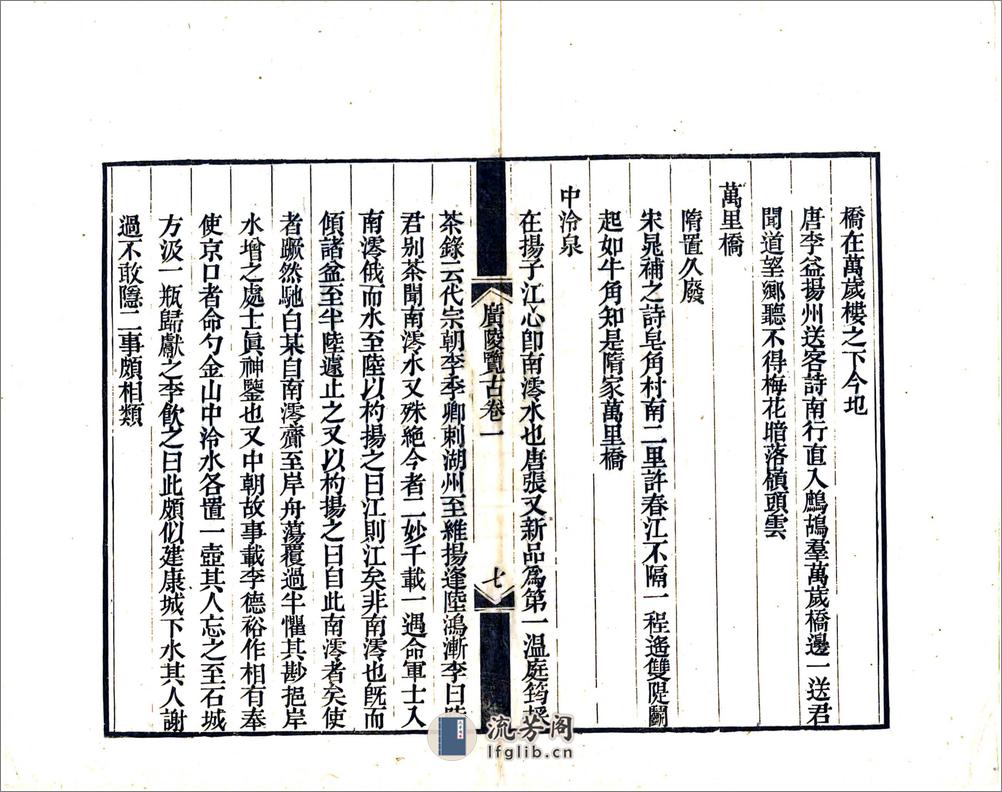 橋在萬歲樓之下今圯
唐李益揚州送客詩南行直入鷓鴣羣萬歲橋邊一送君
聞道望鄉聽不得梅花暗落嶺頭雲
萬里橋
隋置久廢
宋晁補之詩皂角村南二里許春江不隔一程遙雙隄鬭
起如牛角知是隋家萬里橋
中泠泉
在揚子江心卽南澪水也唐張又新品爲第一温庭筠採
廣陵覽古卷一
七
茶錄云代宗朝李季卿刺湖州至維揚逢陸鴻漸李曰陸
君别茶聞南澪水又殊絶今者二妙千載一遇命軍士入
南澪俄而水至陸以杓揚之曰江則江矣非南澪也旣而
傾諸盆至半陸遽止之又以杓揚之曰自此南澪者矣使
者蹶然馳白某自南澪齎至岸舟蕩覆過半懼其尠挹岸
水增之處士眞神鑒也又中朝故事載李德裕作相有奉
使京口者命勺金山中泠水各置一壺其人忘之至石城
方汲一瓶歸獻之李飲之曰此頗似建康城下水其人謝
過不敢隱二事頗相類
流芳阁
lfglib.cn